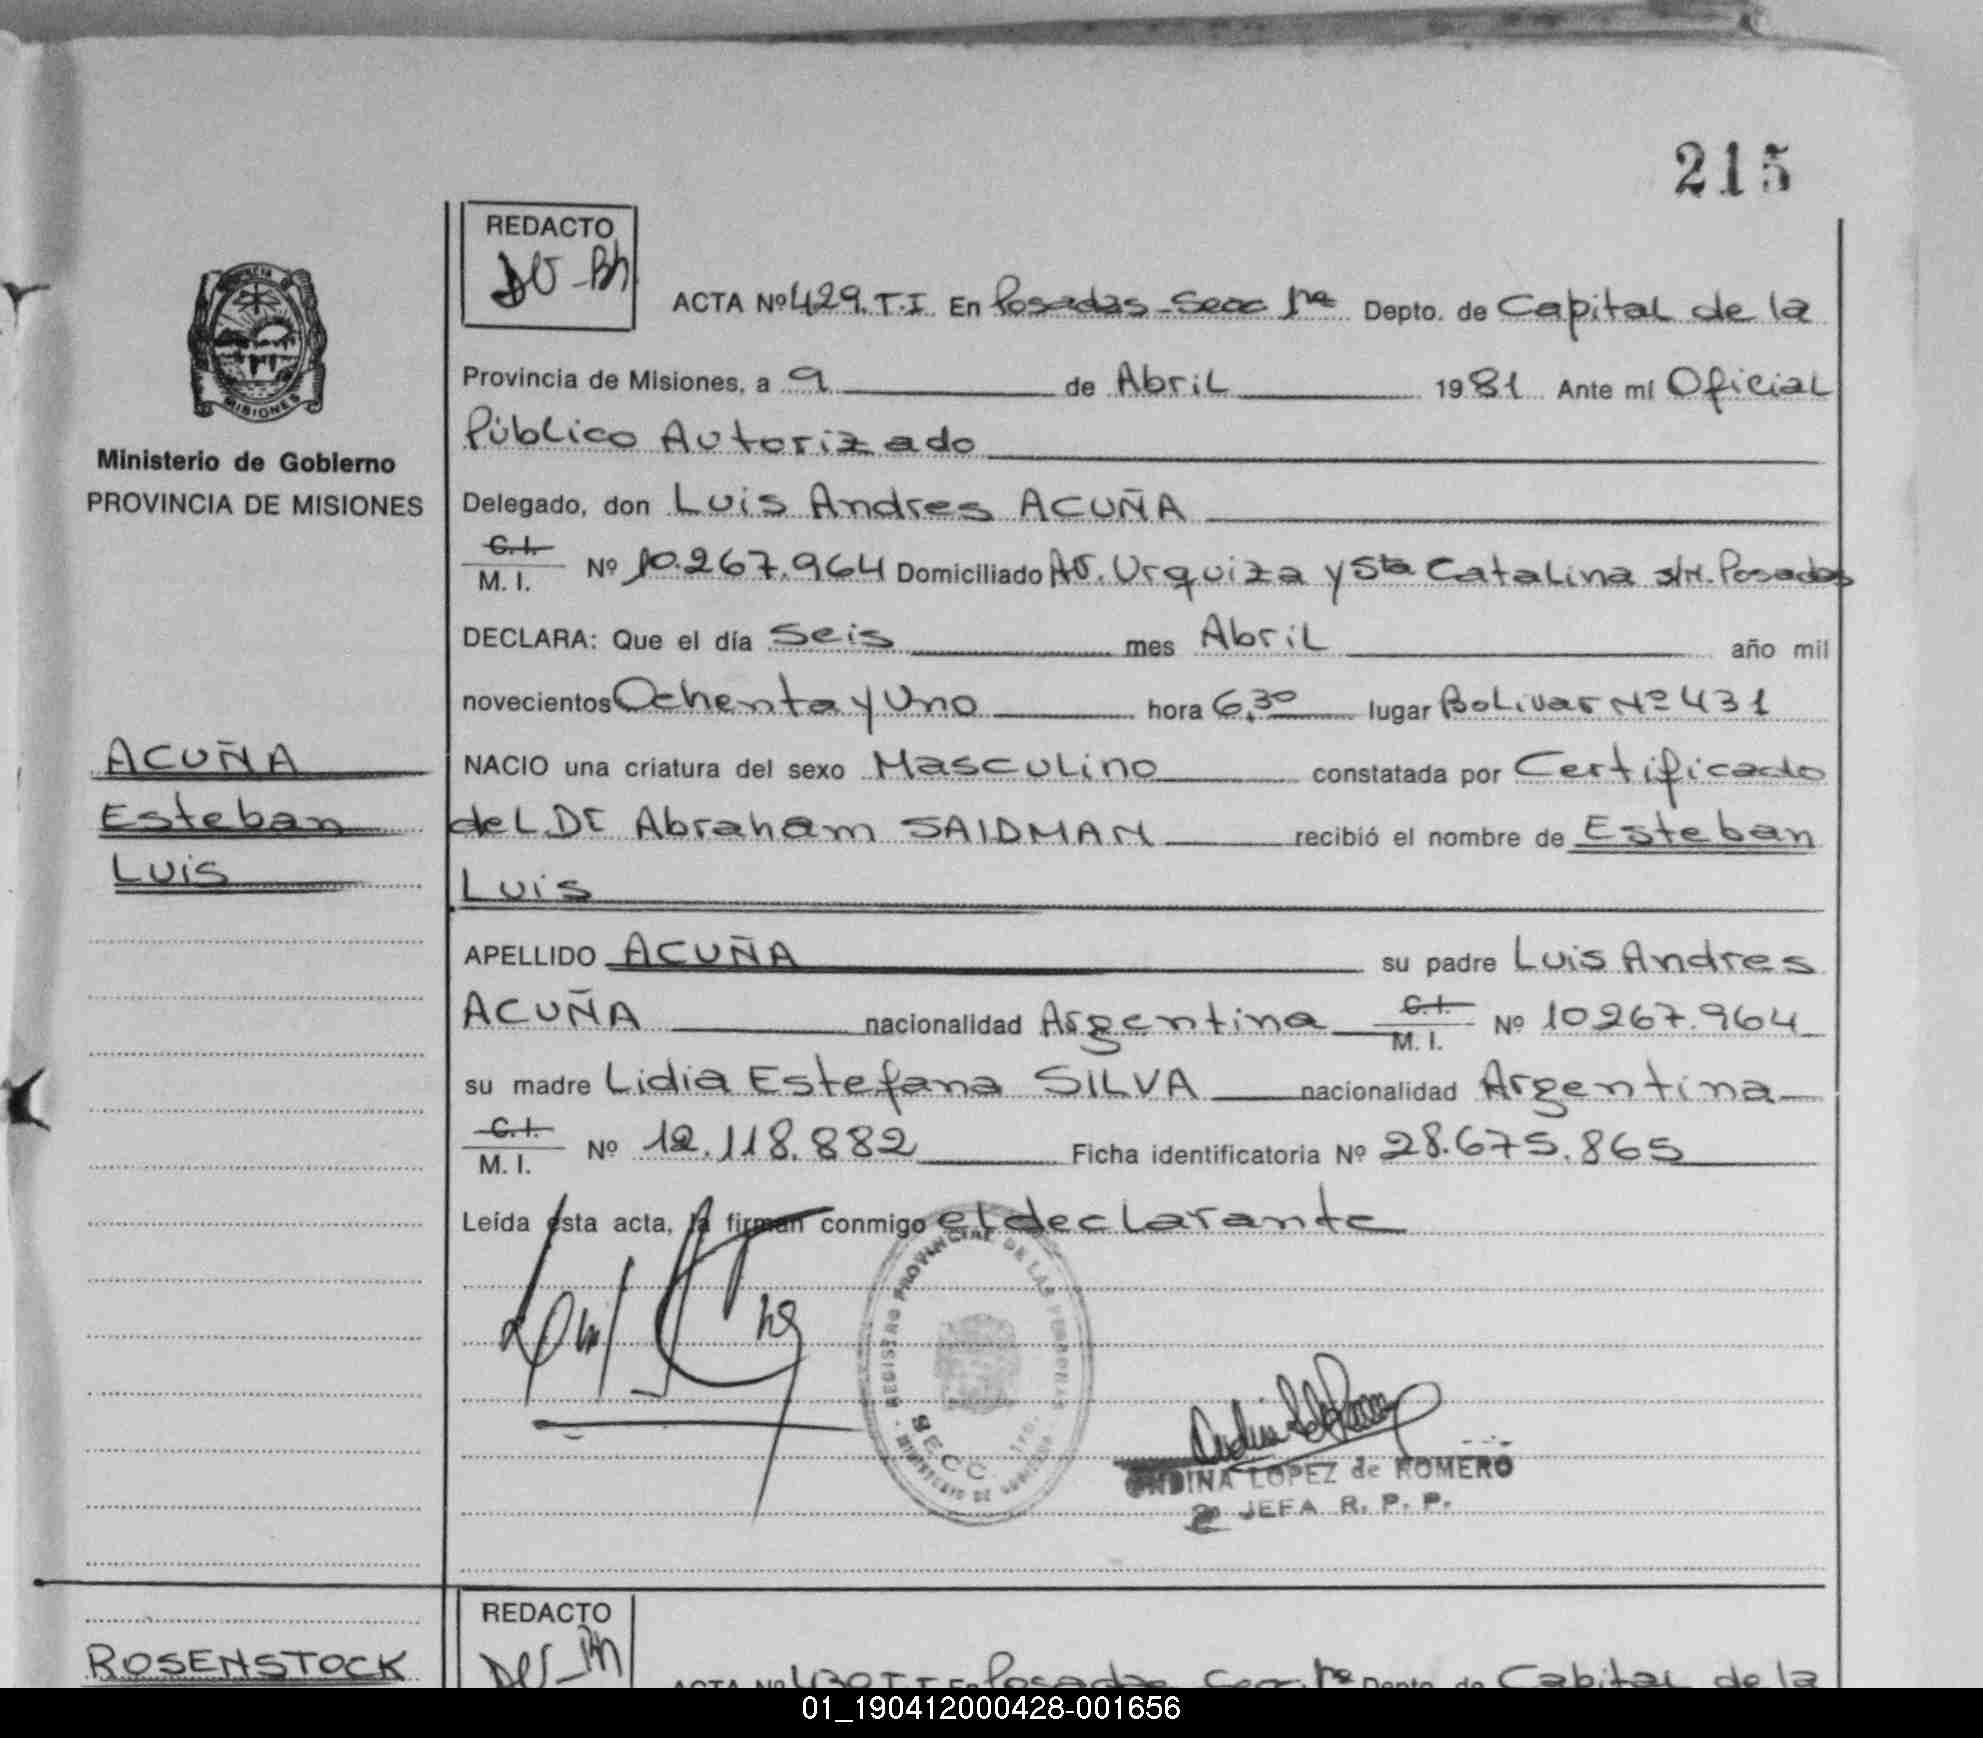 215
REDACTO
ACTA Nº 429. T.I. En Posadas - Secc 1ra Depto. de Capital de la
MISIONES
Provincia de Misiones, a 9 de Abril 1981 Ante mí Oficial
Público Autorizado
Ministerio de Gobierno
PROVINCIA DE MISIONES
Delegado, don Luis Andres ACUÑA
C.I.
M. I. Nº 10.267.964 Domiciliado Av. Urquiza y Sta Catalina s/N. Posadas
DECLARA: Que el día Seis mes Abril año mil
novecientos Ochenta y Uno hora 6,30 lugar Bolivar Nº 431
ACUÑA
Esteban
Luis
NACIO una criatura del sexo Masculino constatada por Certificado
del Dr Abraham SAIDMAN recibió el nombre de Esteban
Luis
APELLIDO ACUÑA su padre Luis Andres
ACUÑA nacionalidad Argentina C.I. M. I. Nº 10267.964
su madre Lidia Estefana SILVA nacionalidad Argentina
C.I.
M. I. Nº 12.118.882 Ficha identificatoria Nº 28.675.865
Leída esta acta, la firman conmigo el declarante
REGISTRO PROVINCIAL DE LAS PERSONAS
SECC. 1ra.
MINISTERIO DE GOBIERNO
ANDINA LOPEZ de ROMERO
2º JEFA R. P. P.
REDACTO
ROSENSTOCK
ACTA Nº 430 T.I. En Posadas Secc. 1ra Depto. de Capital de la
01_190412000428-001656